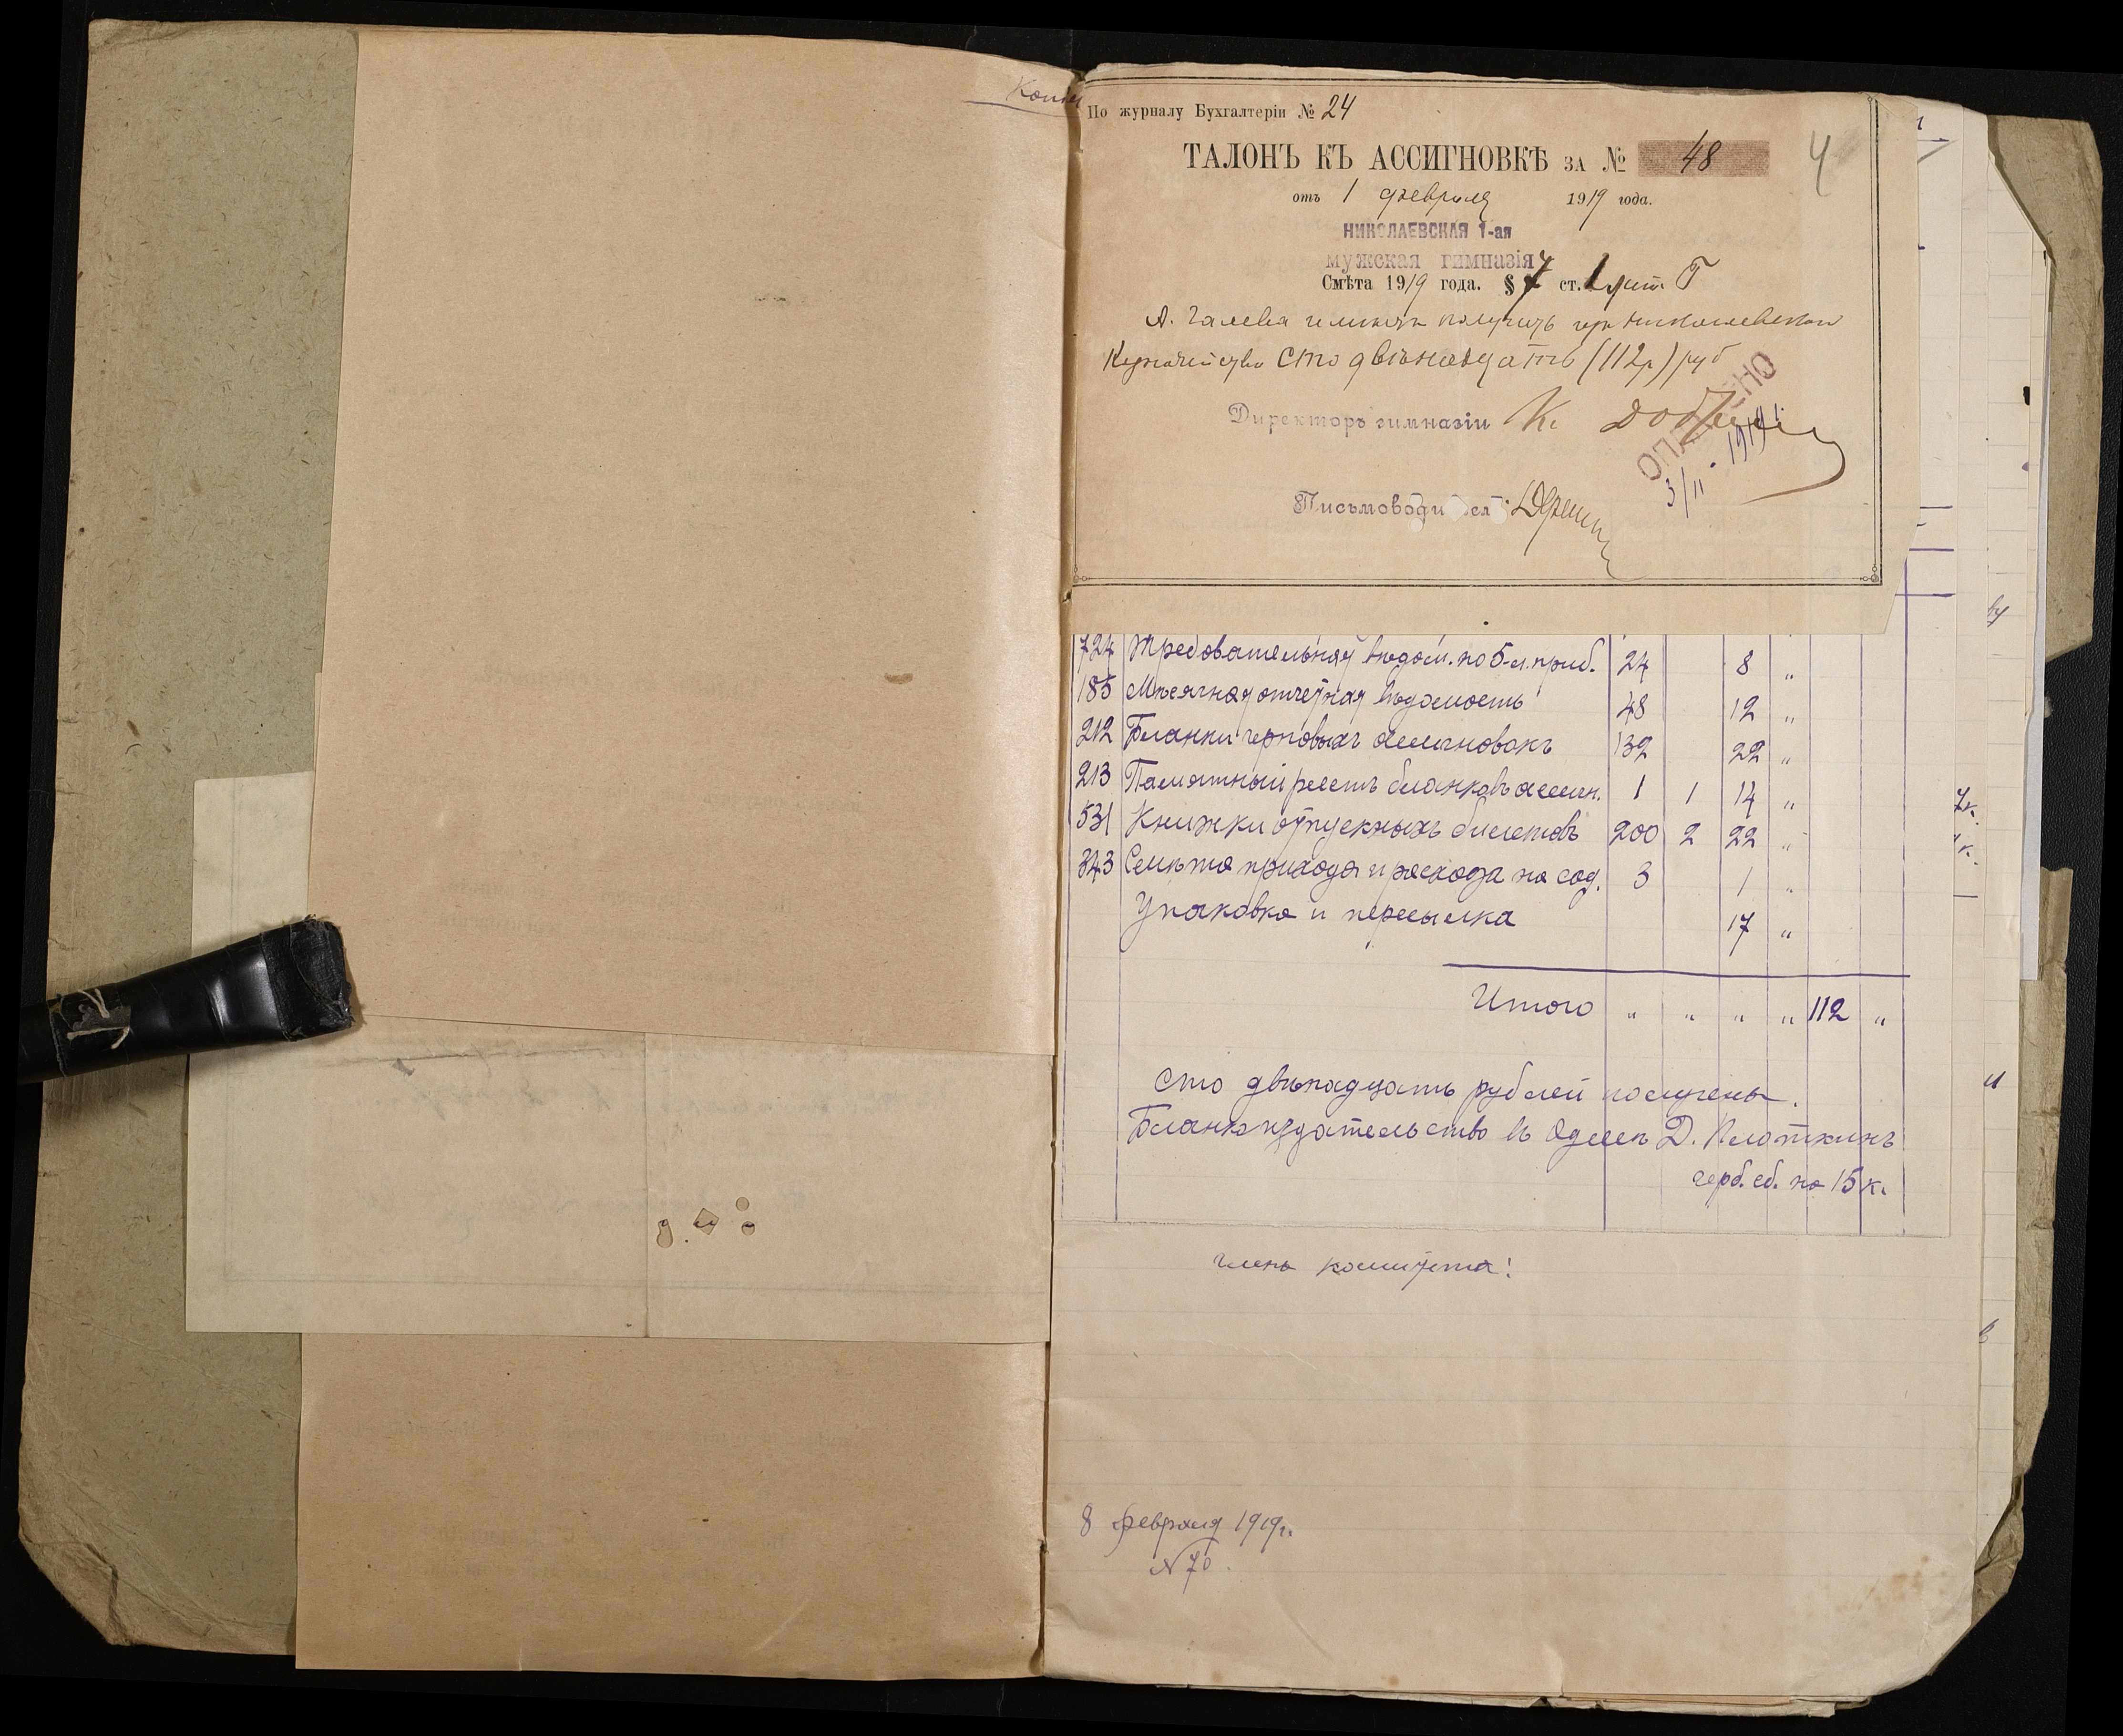 По журналу Бухгалтеріи № 24
ТАЛОНЪ КЪ АССИГНОВКѢ ЗА № 48
4
отъ 1 февраля 1919 года.
НИКОЛАЕВСКАЯ 1-ая
мужская гимназія
Смѣта 1919 года. § 7 ст. 1 лит. Г
получить изъ Николаевскаго
Казначейства сто двѣнадцать (112р) руб
ОПЛАЧЕНО
Директоръ гимназіи К.
3/II - 1919 г.
Письмоводитель
724 Требовательная вѣдом. по 5-л. приб. 24 8 "
185 Мѣсячная отчетная вѣдомость 48 12 "
212 Бланки черновыхъ ассигновокъ 132 22 "
213 Памятный реестъ бланковъ ассигн. 1 1 14 "
531 Книжки отпускныхъ билетовъ 200 2 22 "
343 Смѣта прихода и расхода на сод. 3 1 "
Упаковка и пересылка 17 "
Итого " " " " 112 "
Сто двѣнадцать рублей получены.
Бланкоиздательство въ Одессѣ Д. Плоткинъ
герб. сб. на 15 к.
члены комитета:
8 февраля 1919 г.
№ 70.
7к.